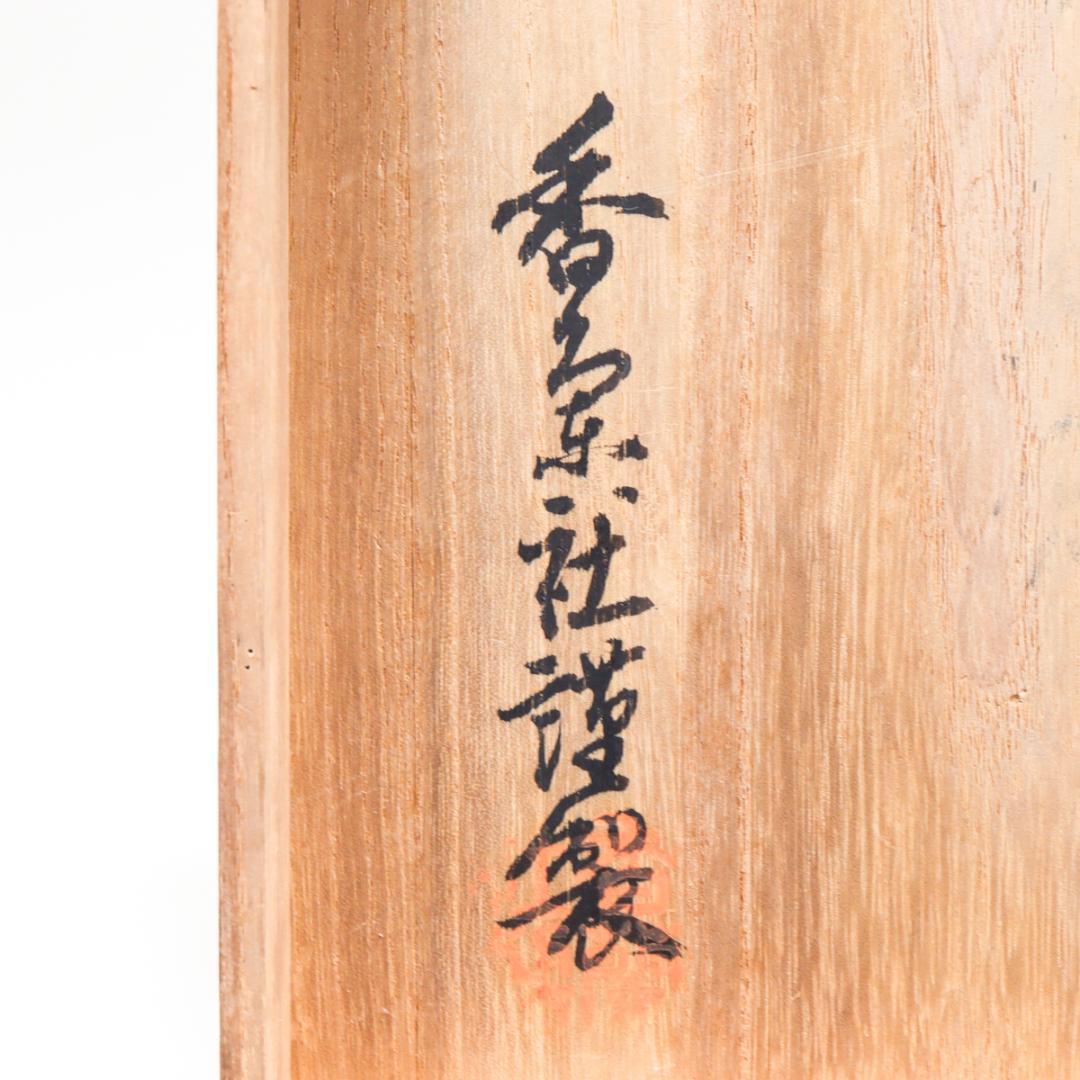 香蘭社謹製